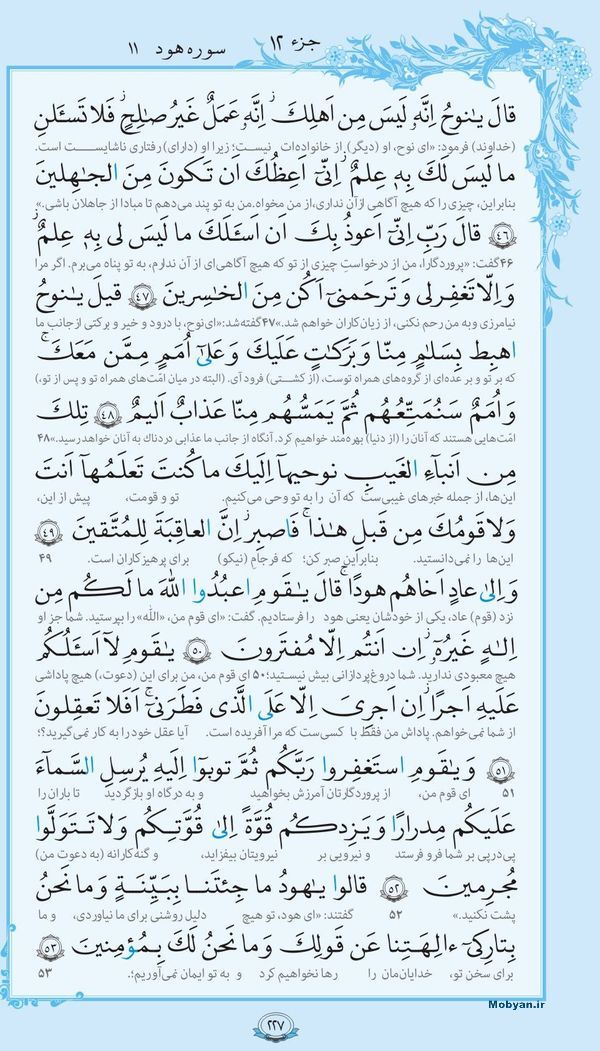 جزء ۱۲ سوره هود ۱۱
قالَ یـٰنوحُ اِنَّهٗ لَیسَ مِن اَهلِكَ ۖ اِنَّهٗ عَمَلٌ غَیرُ صـٰلِحٍ ۖ فَلا تَسـَٔلنِ
(خداوند) فرمود: «ای نوح، او (دیگر) از خانواده‌ات نیست؛ زیرا او (دارای) رفتاری ناشایست است.
ما لَیسَ لَكَ بِهٖ عِلمٌ ۖ اِنّیٓ اَعِظُكَ اَن تَكونَ مِنَ الجـٰهِلینَ
بنابراین، چیزی را که هیچ آگاهی از آن نداری، از من مخواه. من به تو پند می‌دهم تا مبادا از جاهلان باشی.»
﴿۴۶﴾ قالَ رَبِّ اِنّیٓ اَعوذُ بِكَ اَن اَسـَٔلَكَ ما لَیسَ لی بِهٖ عِلمٌ ۖ
۴۶ گفت: «پروردگارا، من از درخواستِ چیزی از تو که هیچ آگاهی‌ای از آن ندارم، به تو پناه می‌برم. اگر مرا
وَاِلّا تَغفِرلی وَتَرحَمنیٓ اَكُن مِنَ الخـٰسِرینَ ﴿۴۷﴾ قیلَ یـٰنوحُ
نیامرزی و به من رحم نکنی، از زیان‌کاران خواهم شد.» ۴۷ گفته شد: «ای نوح، با درود و خیر و برکتی از جانب ما
اهبِط بِسَلـٰمٍ مِنّا وَبَرَكـٰتٍ عَلَیكَ وَعَلیٰٓ اُمَمٍ مِمَّن مَعَكَ ۚ
که بر تو و بر عده‌ای از گروه‌های همراه توست، (از کشتی) فرود آی. (البته در میان امّت‌های همراه تو و پس از تو،)
وَاُمَمٌ سَنُمَتِّعُهُم ثُمَّ یَمَسُّهُم مِنّا عَذابٌ اَلیمٌ ﴿۴۸﴾ تِلكَ
امّت‌هایی هستند که آنان را (از دنیا) بهره‌مند خواهیم کرد. آنگاه از جانب ما عذابی دردناک به آنان خواهد رسید.» ۴۸
مِن اَنبآءِ الغَیبِ نوحیهآ اِلَیكَ ۖ ما كُنتَ تَعلَمُهآ اَنتَ
این‌ها، از جمله خبرهای غیبی‌ست که آن را به تو وحی می‌کنیم. تو و قومت، پیش از این،
وَلا قَومُكَ مِن قَبلِ هـٰذا ۖ فَاصبِر ۖ اِنَّ العاقِبَةَ لِلمُتَّقینَ ﴿۴۹﴾
این‌ها را نمی‌دانستید. بنابراین صبر کن؛ که فرجامِ (نیکو) برای پرهیزکاران است. ۴۹
وَاِلیٰ عادٍ اَخاهُم هودًا ۚ قالَ یـٰقَومِ اعبُدُوا اللهَ ما لَكُم مِن
نزد (قوم) عاد، یکی از خودشان یعنی هود را فرستادیم. گفت: «ای قوم من، «الله» را بپرستید. شما جز او
اِلـٰهٍ غَیرُهٗٓ ۖ اِن اَنتُم اِلّا مُفتَرونَ ﴿۵۰﴾ یـٰقَومِ لآ اَسـَٔلُكُم
هیچ معبودی ندارید. شما دروغ‌پردازانی بیش نیستید؛ ۵۰ ای قوم من، من برای این (دعوت)، هیچ پاداشی
عَلَیهِ اَجرًا ۖ اِن اَجرِیَ اِلّا عَلَی الَّذی فَطَرَنیٓ ۚ اَفَلا تَعقِلونَ
از شما نمی‌خواهم. پاداش من فقط با کسی‌ست که مرا آفریده است. آیا عقل خود را به کار نمی‌گیرید؟؛
﴿۵۱﴾ وَیـٰقَومِ استَغفِروا رَبَّكُم ثُمَّ توبوٓا اِلَیهِ یُرسِلِ السَّمآءَ
۵۱ ای قوم من، از پروردگارتان آمرزش بخواهید و به درگاه او بازگردید تا باران را
عَلَیكُم مِدرارًا وَیَزِدكُم قُوَّةً اِلیٰ قُوَّتِكُم وَلا تَتَوَلَّوا
پی‌درپی بر شما فرو فرستد و نیرویی بر نیرویتان بیفزاید، و گنه‌کارانه (به دعوت من)
مُجرِمینَ ﴿۵۲﴾ قالوا یـٰهودُ ما جِئتَنا بِبَیِّنَةٍ وَما نَحنُ
پشت نکنید.» ۵۲ گفتند: «ای هود، تو هیچ دلیل روشنی برای ما نیاوردی، و ما
بِتارِكیٓ ءالِهَتِنا عَن قَولِكَ وَما نَحنُ لَكَ بِمُؤمِنینَ ﴿۵۳﴾
برای سخن تو، خدایان‌مان را رها نخواهیم کرد و به تو ایمان نمی‌آوریم؛. ۵۳
۲۲۷
Mobyan.ir